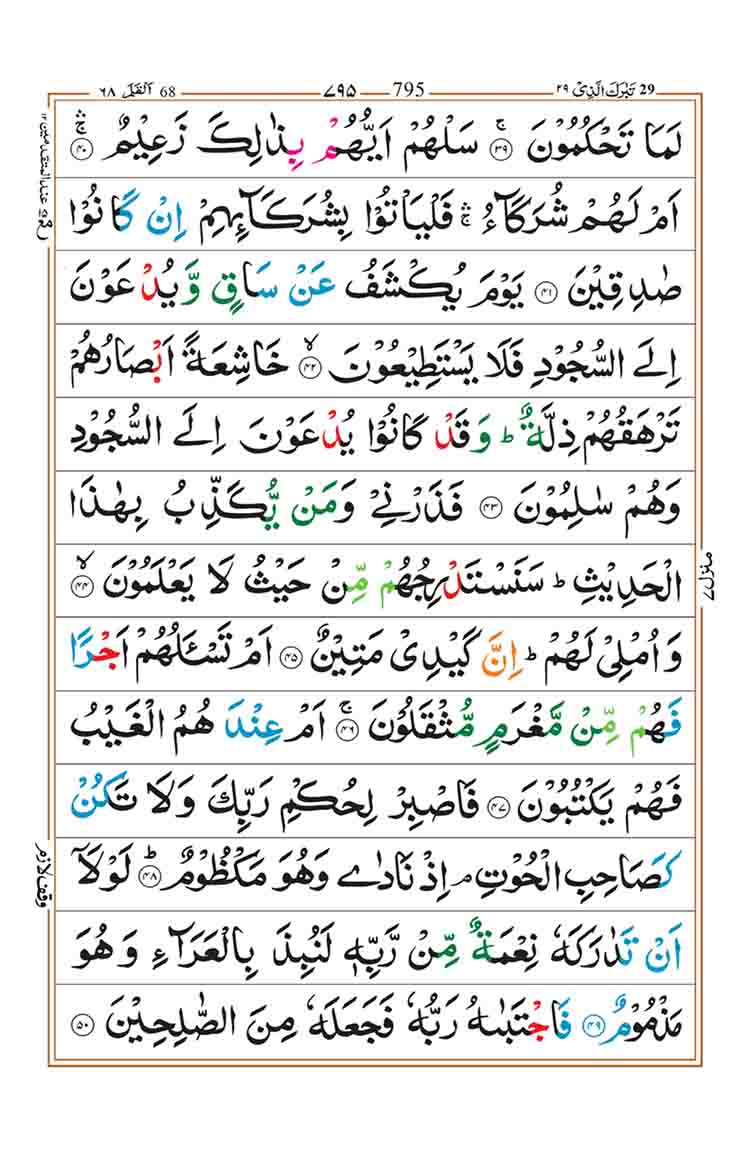 29 تَبٰرَكَ الَّذِیْ ۲۹
795 ۷۹۵
68 اَلْقَلَم ۶۸
لَمَا تَحْكُمُوْنَ ۚ‏ ۳۹ سَلْهُمْ اَیُّهُمْ بِذٰلِكَ زَعِیْمٌ ۚۛ ۴۰
اَمْ لَهُمْ شُرَكَآءُ ۛۚ فَلْیَاْتُوْا بِشُرَكَآىِٕهِمْ اِنْ كَانُوْا
صٰدِقِیْنَ ۴۱ یَوْمَ یُكْشَفُ عَنْ سَاقٍ وَّیُدْعَوْنَ
اِلَی السُّجُوْدِ فَلَا یَسْتَطِیْعُوْنَ ۙ ۴۲ خَاشِعَةً اَبْصَارُهُمْ
تَرْهَقُهُمْ ذِلَّةٌ ؕ وَقَدْ كَانُوْا یُدْعَوْنَ اِلَی السُّجُوْدِ
وَهُمْ سٰلِمُوْنَ ۴۳ فَذَرْنِیْ وَمَنْ یُّكَذِّبُ بِهٰذَا
الْحَدِیْثِ ؕ سَنَسْتَدْرِجُهُمْ مِّنْ حَیْثُ لَا یَعْلَمُوْنَ ۙ ۴۴
وَاُمْلِیْ لَهُمْ ؕ اِنَّ كَیْدِیْ مَتِیْنٌ ۴۵ اَمْ تَسْـَٔلُهُمْ اَجْرًا
فَهُمْ مِّنْ مَّغْرَمٍ مُّثْقَلُوْنَ ۚ ۴۶ اَمْ عِنْدَهُمُ الْغَیْبُ
فَهُمْ یَكْتُبُوْنَ ۴۷ فَاصْبِرْ لِحُكْمِ رَبِّكَ وَلَا تَكُنْ
كَصَاحِبِ الْحُوْتِ ۘ اِذْ نَادٰی وَهُوَ مَكْظُوْمٌ ؕ ۴۸ لَوْلَاۤ
اَنْ تَدٰرَكَهٗ نِعْمَةٌ مِّنْ رَّبِّهٖ لَنُبِذَ بِالْعَرَآءِ وَهُوَ
مَذْمُوْمٌ ۴۹ فَاجْتَبٰىهُ رَبُّهٗ فَجَعَلَهٗ مِنَ الصّٰلِحِیْنَ ۵۰
عند المتقدمین ۱۲
منزل ۷
وقف لازم